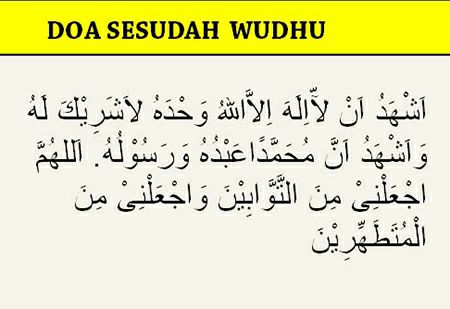 DOA SESUDAH WUDHU
اَشْهَدُ اَنْ لَآاِلَهَ اِلاَّاللهُ وَحْدَهُ لاَشَرِيْكَ لَهُ
وَاَشْهَدُ اَنَّ مُحَمَّدًاعَبْدُهُ وَرَسُوْلُهُ. اَللهُمَّ
اجْعَلْنِىْ مِنَ التَّوَّابِيْنَ وَاجْعَلْنِىْ مِنَ
الْمُتَطَهِّرِيْنَ